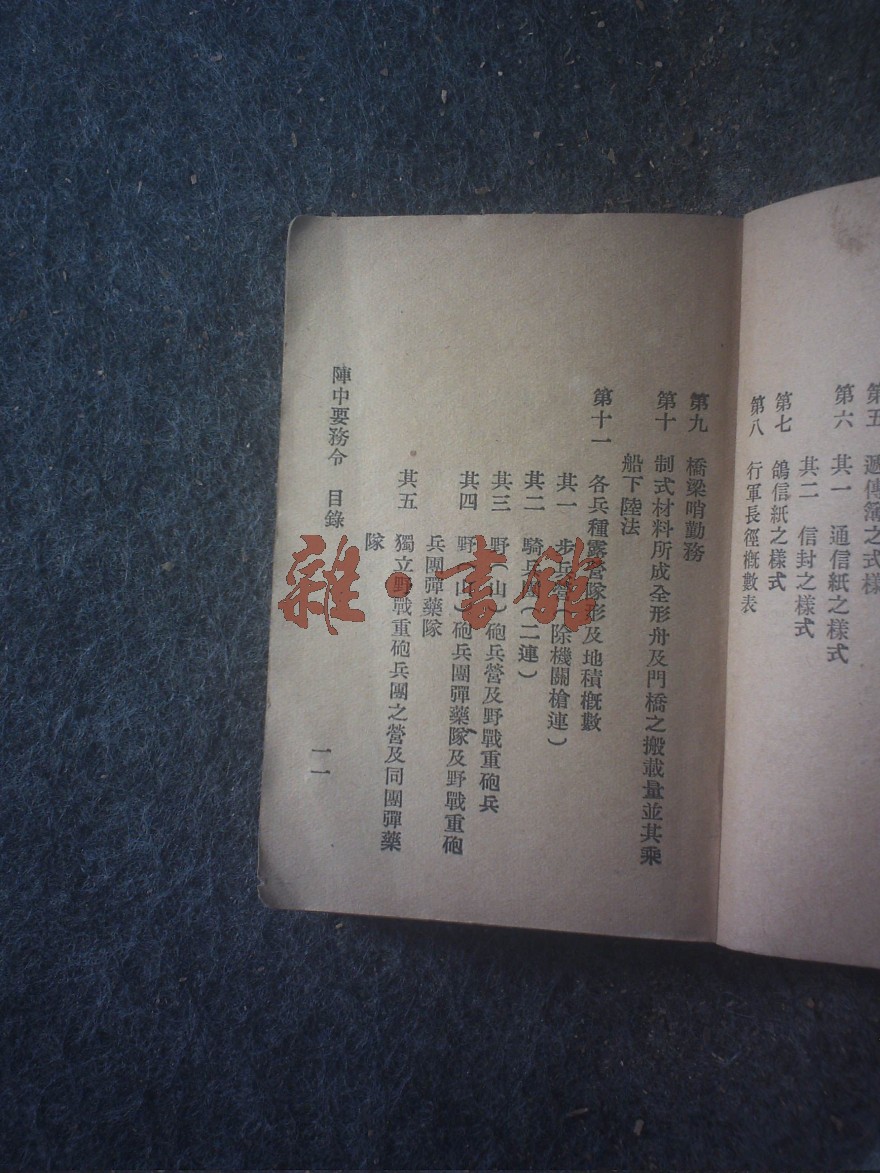 第五　遞傳簿之式樣
第六　其一　通信紙之樣式
其二　信封之樣式
第七　鴿信紙之樣式
第八　行軍長徑概數表
第九　橋梁哨勤務
第十　制式材料所成全形舟及門橋之搬載量並其乘
船下陸法
第十一　各兵種露營隊形及地積概數
其一　步兵營（除機關槍連）
其二　騎兵團（二連）
其三　野（山）砲兵營及野戰重砲兵
其四　野（山）砲兵團彈藥隊及野戰重砲
兵團彈藥隊
其五　獨立野戰重砲兵團之營及同團彈藥
隊
陣中要務令　目錄
一一
雜·書館